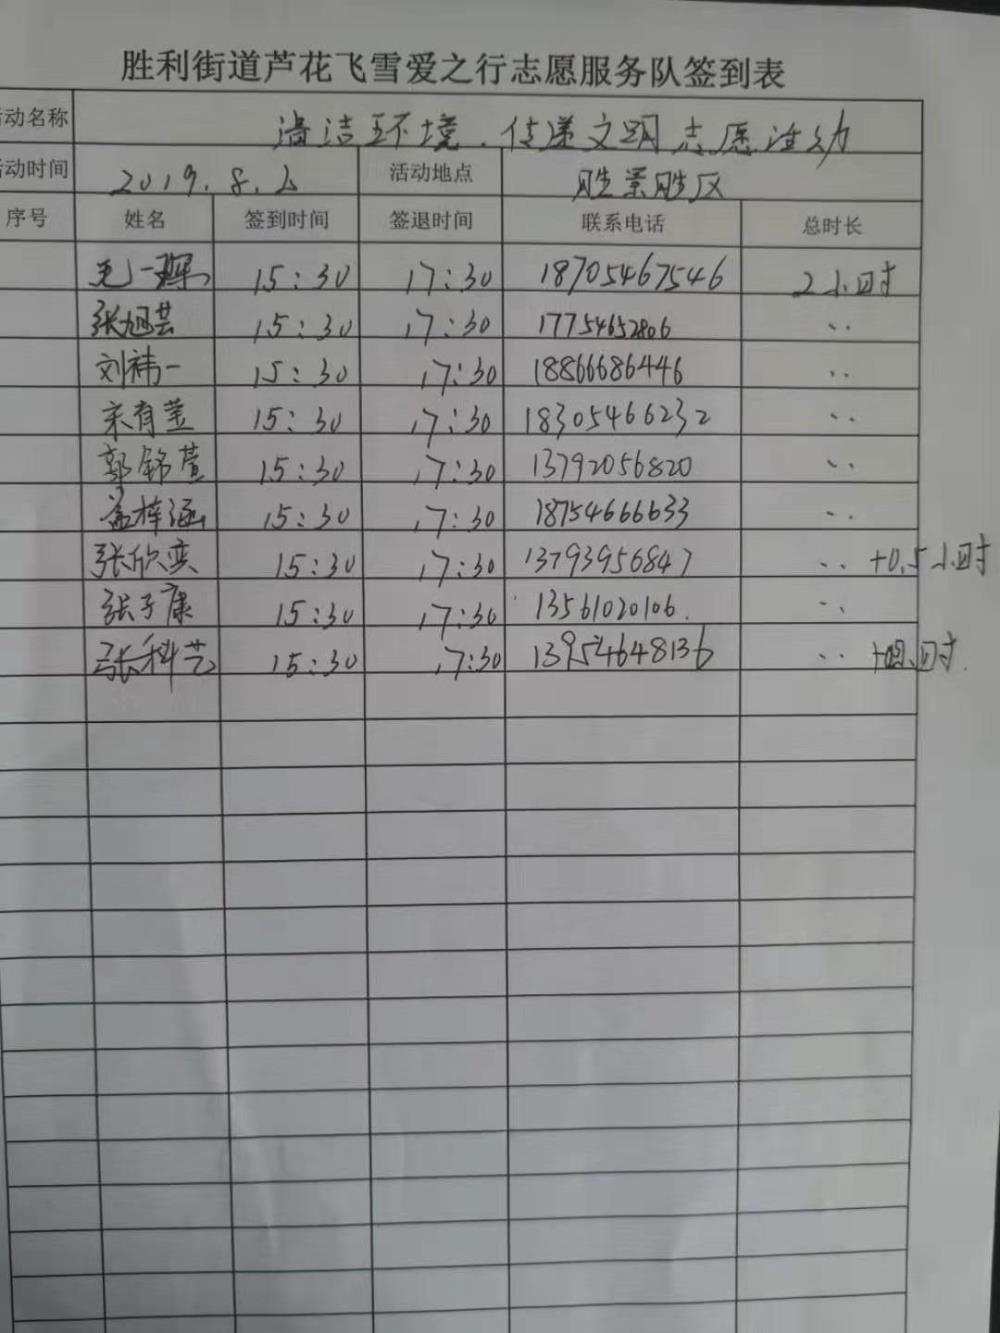 胜利街道芦花飞雪爱之行志愿服务队签到表
活动名称 清洁环境、传递文明志愿活动
活动时间 2019.8.2 活动地点 胜景胜区
序号 姓名 签到时间 签退时间 联系电话 总时长
毛一 15:30 17:30 18705467546 2小时
张旭芸 15:30 17:30 17754652806 〃
刘祎一 15:30 17:30 18866686446 〃
宋有莹 15:30 17:30 18305466232 〃
郭锦萱 15:30 17:30 13792056820 〃
盖梓涵 15:30 17:30 18754666633 〃
张欣奕 15:30 17:30 13793956847 〃 +0.5小时
张子康 15:30 17:30 13561020106. 〃
张科艺 15:30 17:30 13954648136 〃